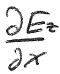 ∂E_z/∂x